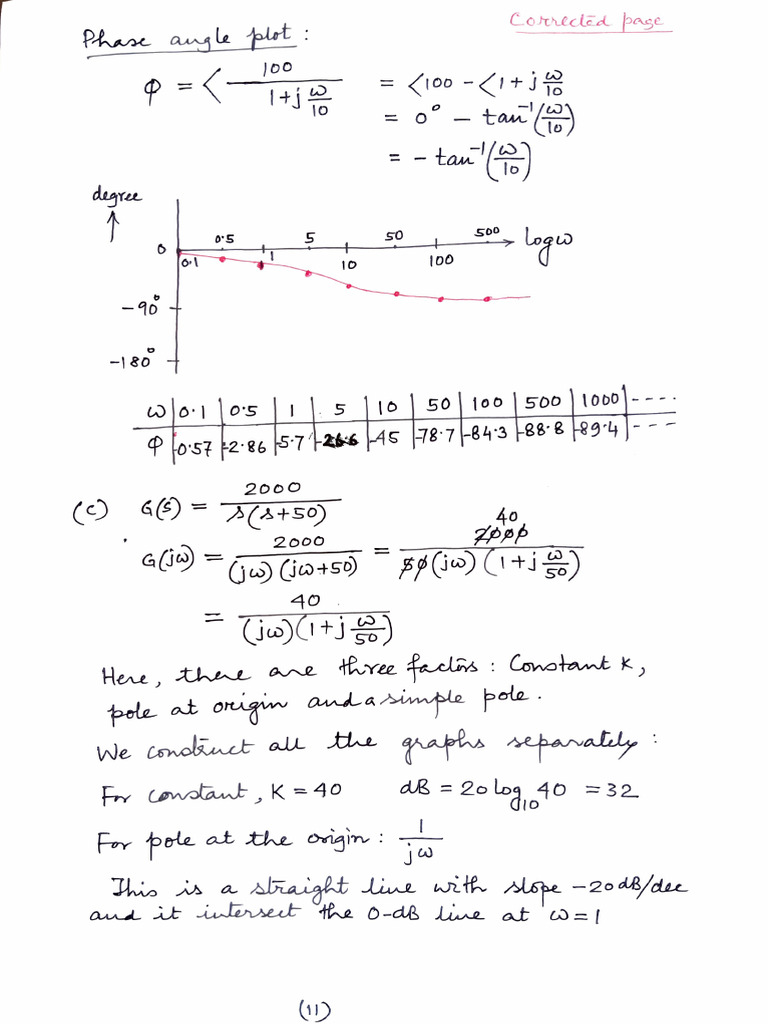 Corrected page
Phase angle plot :
φ = < 100 / (1+j ω/10) = <100 - <1+j ω/10
= 0° - tan⁻¹(ω/10)
= - tan⁻¹(ω/10)
degree
↑
0.5 5 50 500 → log ω
0 0.1 1 10 100
-90°
-180°
ω | 0.1 | 0.5 | 1 | 5 | 10 | 50 | 100 | 500 | 1000 | ----
φ | -0.57 | -2.86 | -5.7 | -26.6 | -45 | -78.7 | -84.3 | -88.8 | -89.4 | ---
(c) G(s) = 2000 / s(s+50)
G(jω) = 2000 / (jω)(jω+50) = 40 2000 / 50(jω)(1+j ω/50)
= 40 / (jω)(1+j ω/50)
Here, there are three factors : Constant K,
pole at origin and a simple pole.
We construct all the graphs separately :
For constant, K = 40 dB = 20 log₁₀ 40 = 32
For pole at the origin : 1/jω
This is a straight line with slope -20dB/dec
and it intersect the 0-dB line at ω=1
(11)